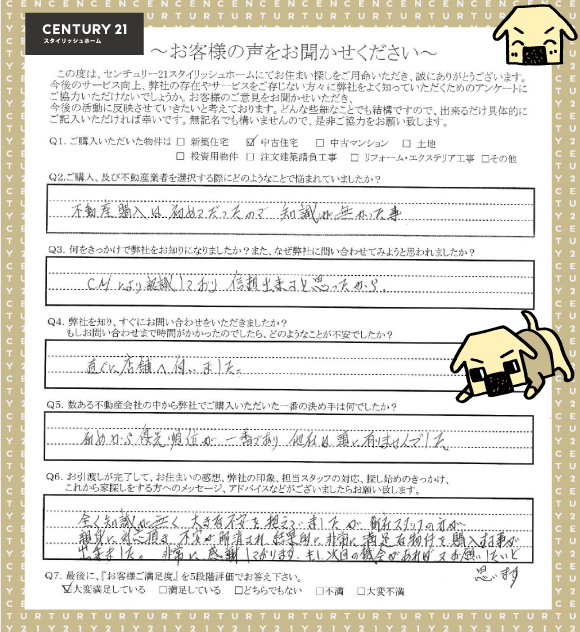 CENTURY 21
スタイリッシュホーム
～お客様の声をお聞かせください～
この度は、センチュリー21スタイリッシュホームにてお住まい探しをご用命いただき、誠にありがとうございます。
今後のサービス向上、弊社の存在やサービスをご存じない方々に弊社をよく知っていただくためのアンケートに
ご協力いただけないでしょうか。お客様のご意見をお聞かせいただき、
今後の活動に反映させていきたいと考えております。どんな些細なことでも結構ですので、出来るだけ具体的に
ご記入いただければ幸いです。無記名でも構いませんので、是非ご協力をお願い致します。
Q1. ご購入いただいた物件は □ 新築住宅 ☑ 中古住宅 □ 中古マンション □ 土地
□ 投資用物件 □ 注文建築請負工事 □ リフォーム・エクステリア工事 □その他
Q2.ご購入、及び不動産業者を選択する際にどのようなことで悩まれていましたか?
不動産購入は初めてだったので 知識が無かった事
Q3. 何をきっかけで弊社をお知りになりましたか?また、なぜ弊社に問い合わせてみようと思われましたか?
CMにより認識しており 信頼出来ると思ったから。
Q4. 弊社を知り、すぐにお問い合わせをいただきましたか?
もしお問い合わせまで時間がかかったのでしたら、どのようなことが不安でしたか?
直ぐに店舗へ行いました。
Q5. 数ある不動産会社の中から弊社でご購入いただいた一番の決め手は何でしたか?
初めから優先順位が 一番であり 他社は頭に有りませんでした。
Q6. お引渡しが完了して、お住まいの感想、弊社の印象、担当スタッフの対応、探し始めのきっかけ、
これから家探しをする方へのメッセージ、アドバイスなどがございましたらお願い致します。
全く知識が無く、大きな不安を抱えていましたが スタッフの方が
親身に対応頂き 不安が解消され 結果的に非常に満足な物件を購入する事が
出来ました。 非常に感謝しております。もし次回の機会があれば又お願いしたいと
思います
Q7. 最後に、『お客様ご満足度』を5段階評価でお答え下さい。
☑大変満足している □満足している □どちらでもない □不満 □大変不満